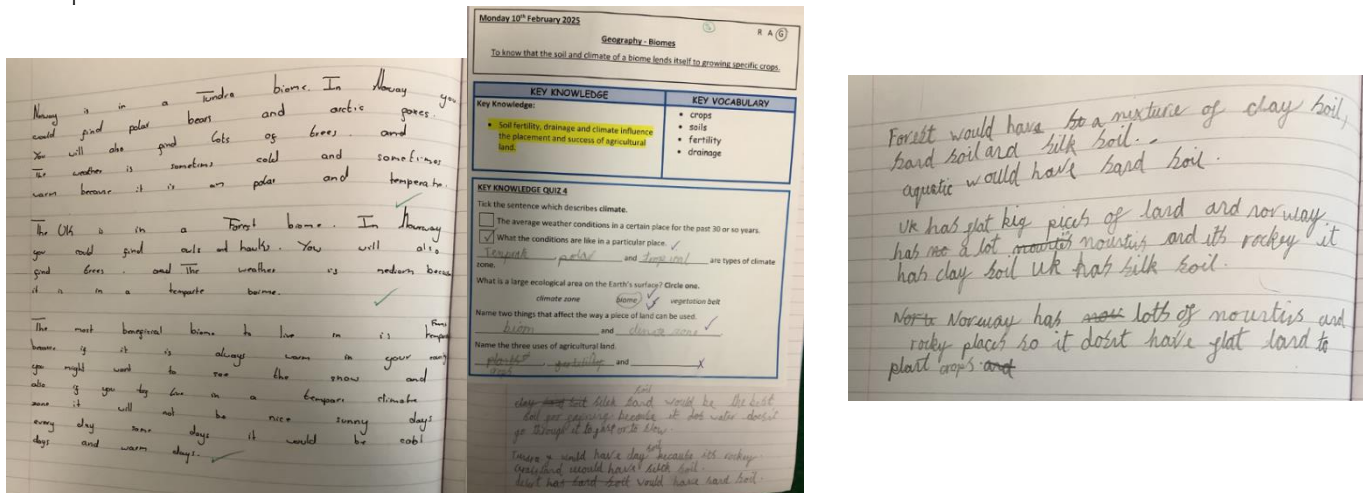 Norway is in a Tundra biome. In Norway you
could find polar bears and arctic foxes.
You will also find lots of trees. and
The weather is sometims cold and sometimes
warm because it is an polar and temperate.
The UK is in a Forest biome. In Norway
you could find owls and hawks. You will also
find trees. and The weather is mediom becaus
it is in a temparte baime.
The most beneficral biome to live in is
because if it is always warm in your
you might want to see the snow and
also if you try live in a tempare climate
zone it will not be nice sunny days
every day some days it would be cold
days and warm days.
Monday 10th February 2025
R A G
Geography - Biomes
To know that the soil and climate of a biome lends itself to growing specific crops.
KEY KNOWLEDGE
KEY VOCABULARY
Key Knowledge:
• Soil fertility, drainage and climate influence
the placement and success of agricultural
land.
• crops
• soils
• fertility
• drainage
KEY KNOWLEDGE QUIZ 4
Tick the sentence which describes climate.
The average weather conditions in a certain place for the past 30 or so years.
What the conditions are like in a particular place.
polar and are types of climate
zone.
What is a large ecological area on the Earth's surface? Circle one.
climate zone biome vegetation belt
Name two things that affect the way a piece of land can be used.
biom and climate zone
Name the three uses of agricultural land.
and
soil
clay silck sand would be the best
soil for because it water doesn't
go through it to or to slow.
soil
would have clay because its rockey
would have silck soil.
would have sand soil.
Forest would have a mixture of clay soil,
sand soil and silk soil.
aquatic would have sand soil.
UK has flat big pices of land and norway
has a lot mountis and its rockey it
has clay soil UK has silk soil.
Norway has lots of mountis and
rocky places so it dosnt have flat land to
plant crops